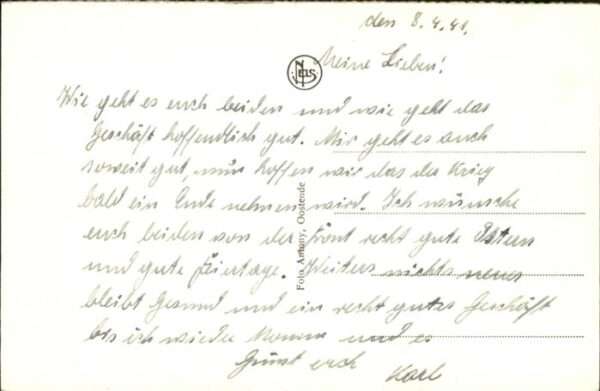 den 8.4.41.
Meine Lieben!
Wie geht es euch beiden und wie geht das
Geschäft hoffendlich gut. Mir geht es auch
soweit gut, nun hoffen wir das der Krieg
bald ein Ende nehmen wird. Ich wünsche
euch beiden von der Front recht gute Ostern
und gute Feiertage. Weiters nichts neues
bleibt Gesund und ein recht gutes Geschäft
bis ich wieder komme und es
Grüst euch
Karl
NELS
Foto Antony, Oostende